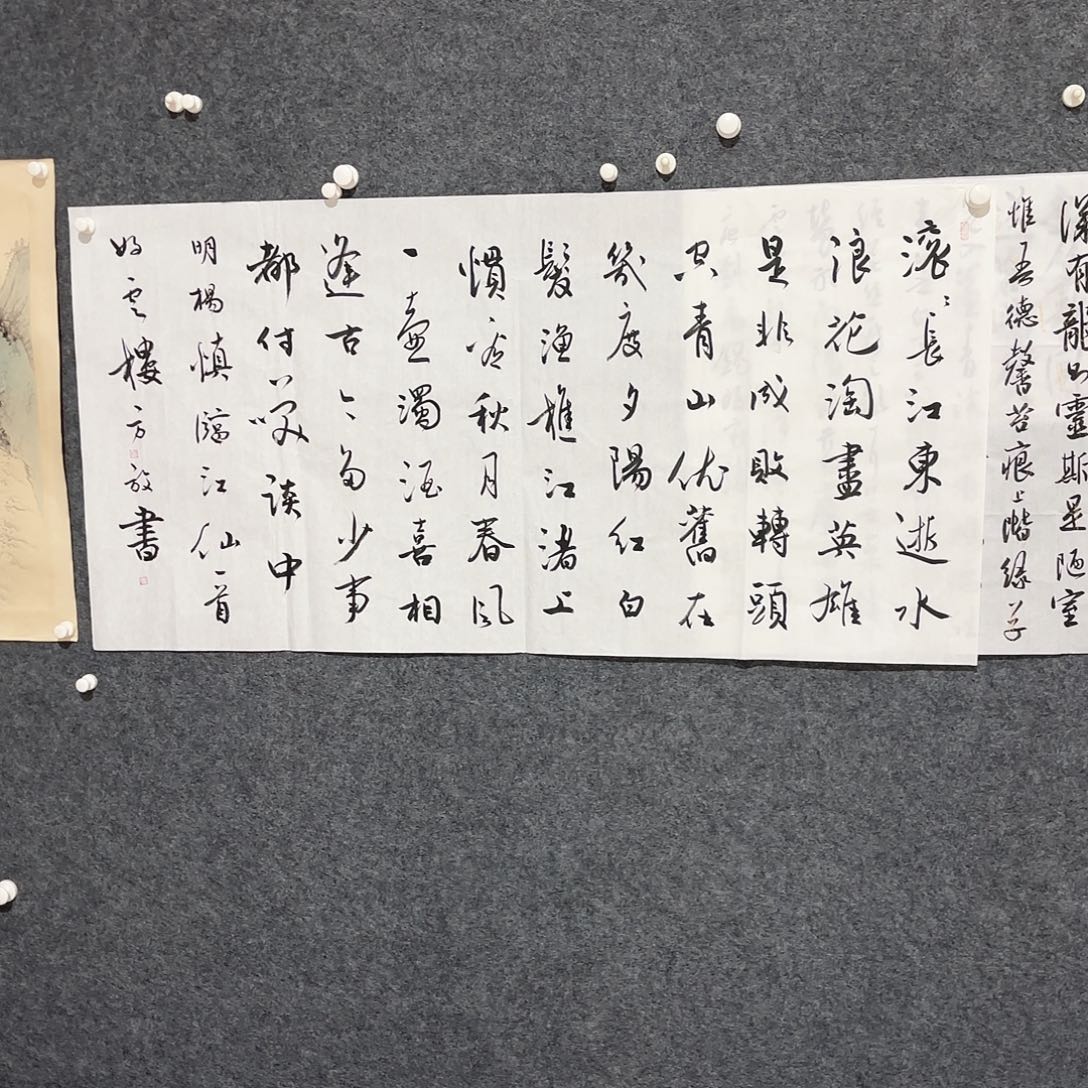 深有龍則靈斯是陋室
惟吾德馨苔痕上階緑草
滾々長江東逝水
浪花淘盡英雄
是非成敗轉頭
空青山依舊在
幾度夕陽紅白
髮漁樵江渚上
慣看秋月春風
一壺濁酒喜相
逢古今多少事
都付笑談中
明楊慎臨江仙一首
雲樓方放書